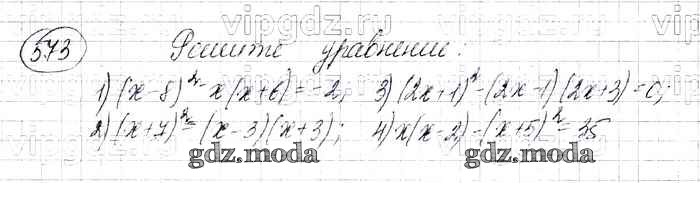 vipgdz.ru vipgdz.ru vipgdz.ru
573 Решите уравнение:
1) (x-8)² - x(x+6) = -2; 3) (2x+1)² - (2x-1)(2x+3) = 0;
2) (x+7)² = (x-3)(x+3); 4) x(x-2) - (x+5)² = 35
gdz.moda gdz.moda